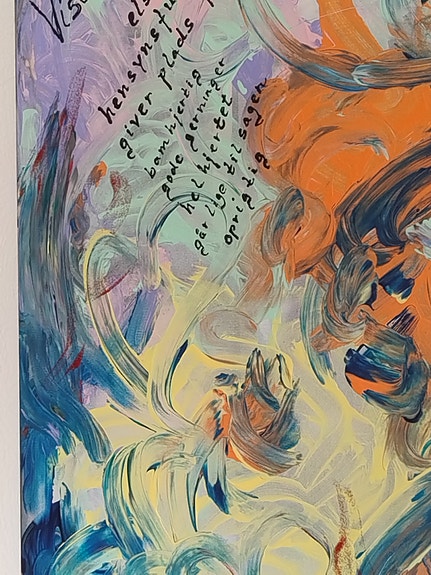 Vis
els
hensynsfu
giver plads
barmhjertig
gode gerninger
helhjertet
går lige til sagen
oprigtig